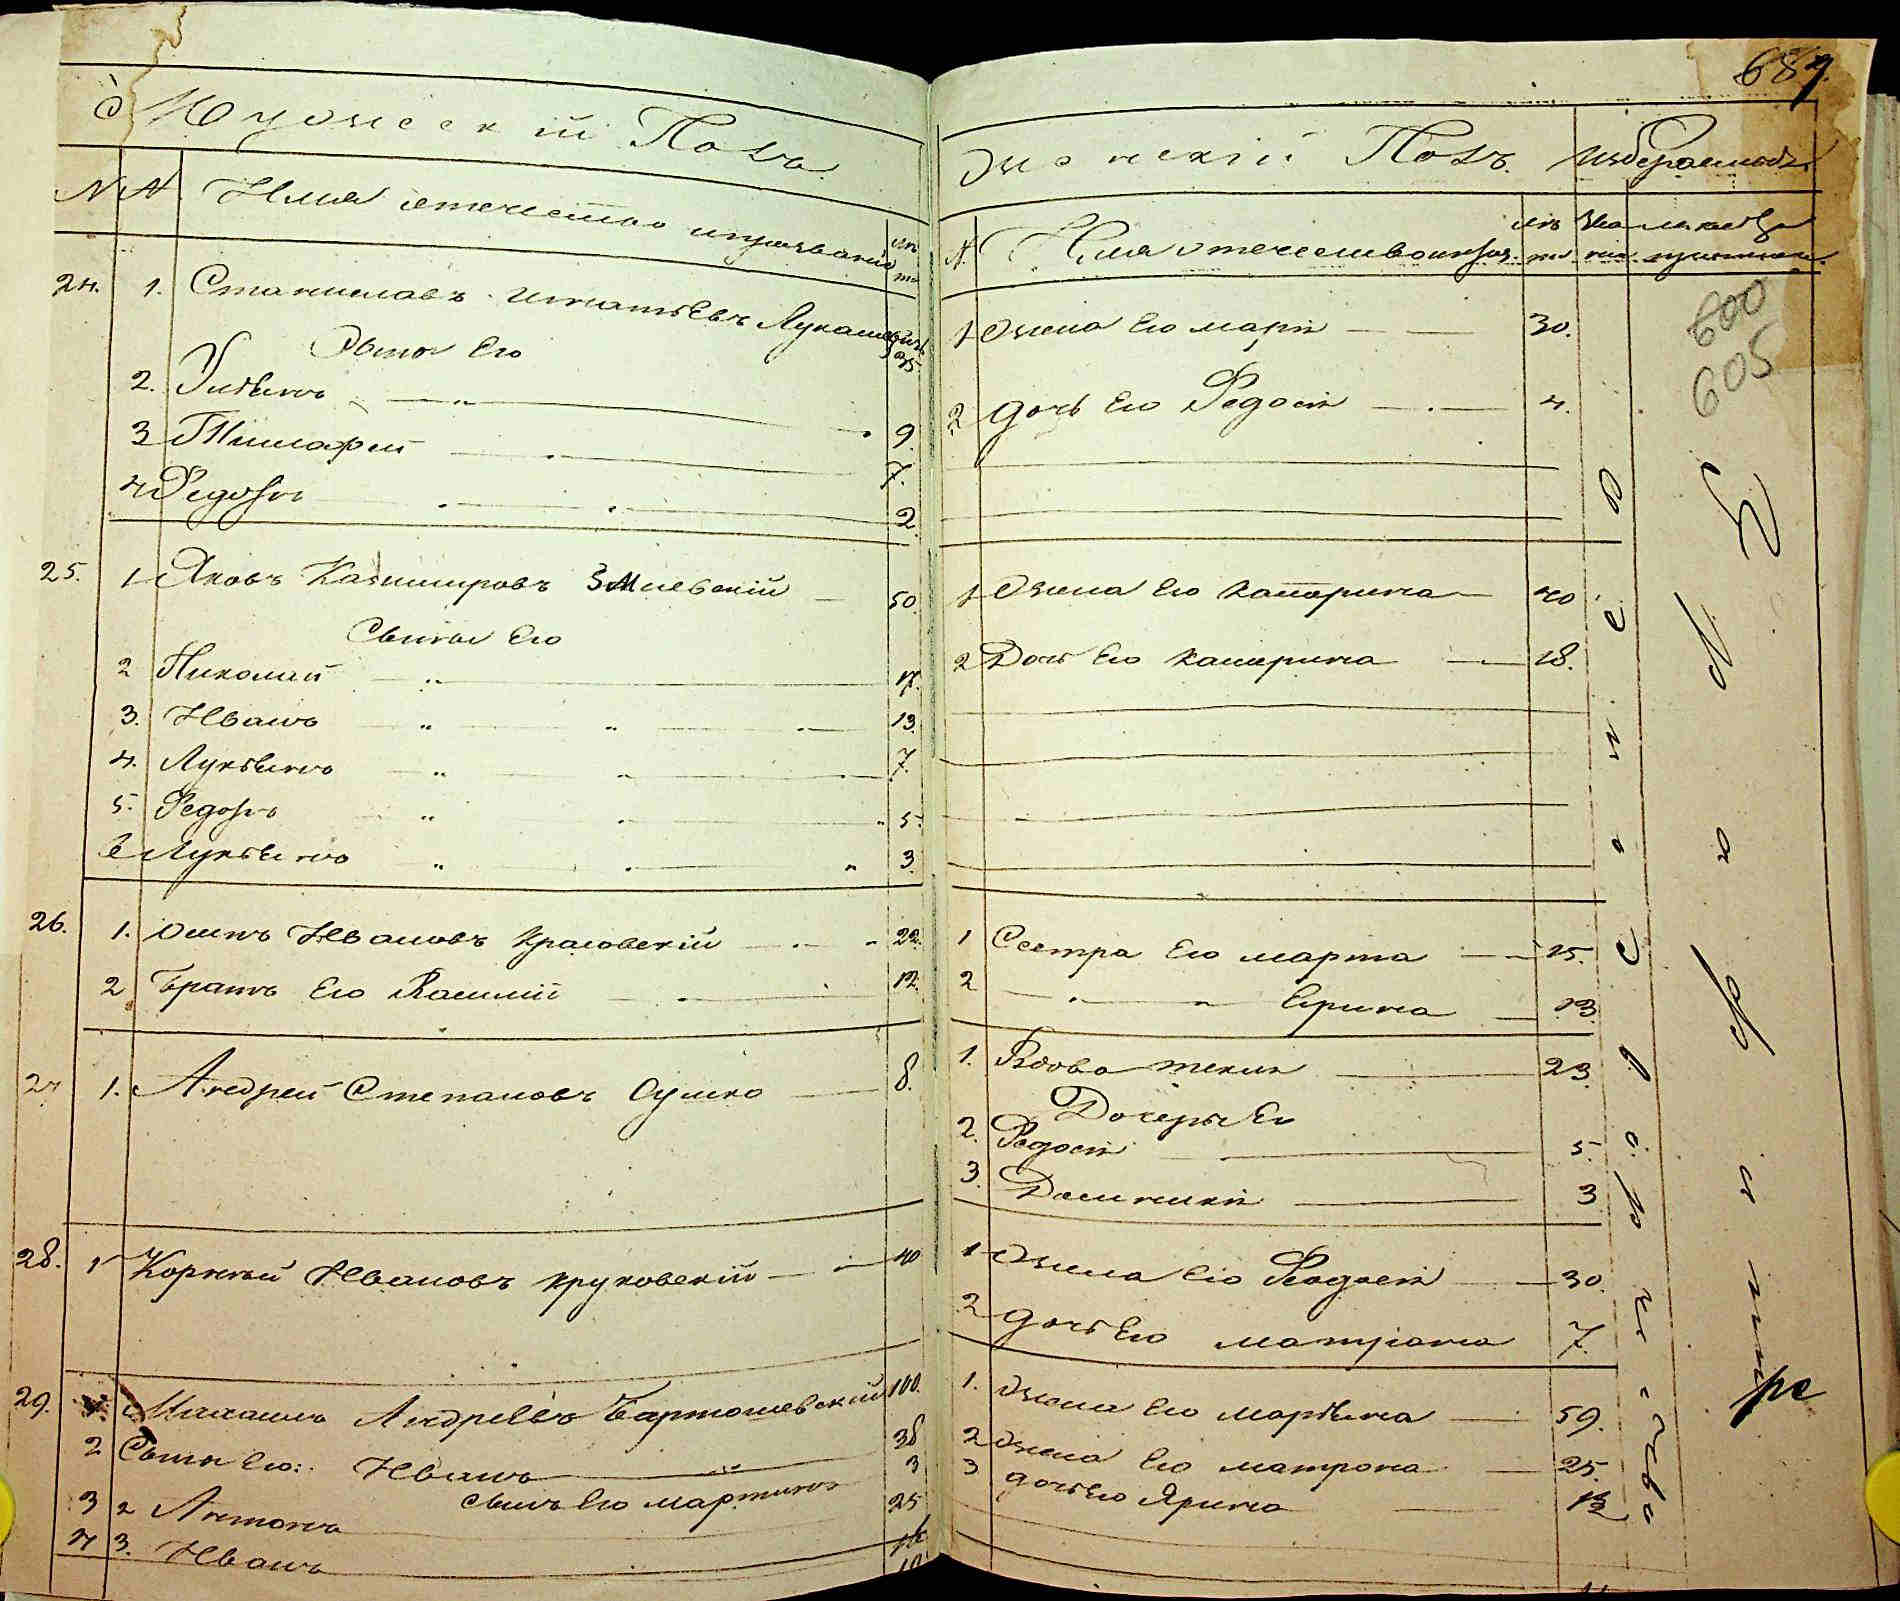 Мужеский Полъ
NN Имя отечество и прозвание лѣта
24. 1. Станиславъ Игнатьевъ Лукашевичъ 35
Сыны Его
2. Ульянъ 9
3 Тимофей 7.
4 Федоръ 2
25. 1 Яковъ Казимировъ Змиевскій 50
Сыны Его
2 Николай 17.
3. Иванъ 13.
4. Лукьянъ 7.
5. Федоръ 5.
6 Лукьянъ 3.
26. 1. Осипъ Ивановъ Красовскій 22.
2 Братъ Его Василій 12.
27 1. Андрей Степановъ Сушко 8.
28. 1 Корнѣй Ивановъ Круковскій 40
29. Андреевъ Бартошевскій 100.
2 Сыны Его: Иванъ 38
сынъ Его Мартинъ 3
3 2 Антонъ 25
4 3. Иванъ
689
Женскій Полъ.
N. Имя отечество лѣта
600
605
1 Жена Его Марія 30.
2 Дочь Его Федосія 4.
1 Жена Его Катерина 40
2 Дочь Его Катерина 18.
1 Сестра Его Марта 15.
2 Ирина 13.
1. Вдова Текля 23.
Дочери Его
2. Федосія 5.
3. Доминикія 3
1 Жена Его Феодосія 30.
2 Дочь Его Матрона 7.
1. Жена Его Марьяна 59.
2 Жена Его Матрона 25.
3 Дочь Его Ярина 12